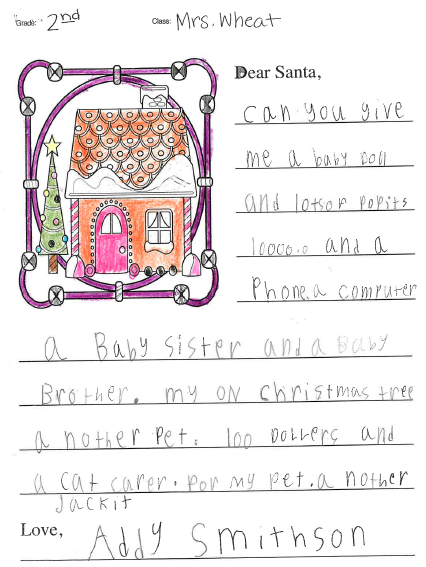 Grade: 2nd Class: Mrs. Wheat
Dear Santa,
can you give
me a baby doll
and lotsor popits
10000.0 and a
Phone.a computer
a Baby sister and a Baby
Brother. my ON christmas tree
a nother Pet. 100 Dollers and
a cat carer. for my pet. a nother
Jackit
Love, Addy Smithson